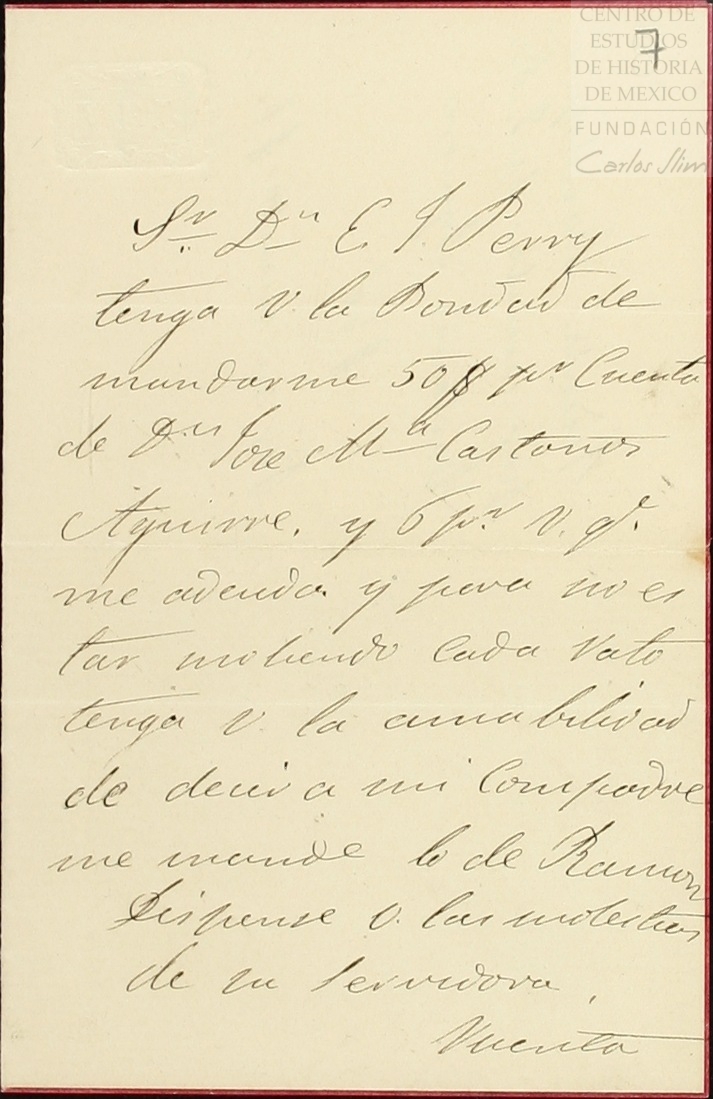 CENTRO DE
ESTUDIOS
DE HISTORIA
DE MEXICO
FUNDACIÓN
Carlos Slim
7
Sr. Dn E. J. Perry
tenga V. la Bondad de
mandarme 50 $ pr Cuenta
de Dn Jose Ma Castaños
Aguirre. y 6 pr. V. qe.
me adeuda. y para no es
tar moliendo cada rato
tenga V. la amabilidad
de decir a mi Compadre
me mande lo de Ramon
Dispense V. las molestias
de su servidora,